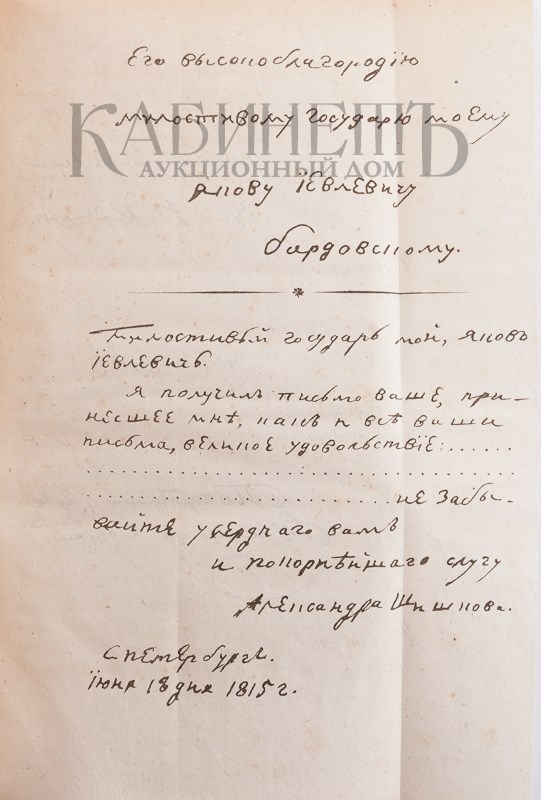 Его высокоблагородїю
КАБИНЕТЪ
милостивому государю моему
АУКЦИОННЫЙ ДОМ
якову їевлевичу
бардовскому.
Милостивый государь мой, яковъ
їевлевичь.
я получилъ письмо ваше, при-
несшее мнѣ, какъ и всѣ ваши
письма, великое удовольствїе: ......
.......................................
........................... не забы-
вайте усерднаго вамъ
и покорнѣйшаго слугу
Александра Шишкова.
С петербургъ.
їюня 18 дня 1815 г.